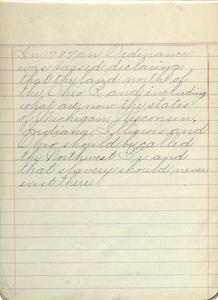 In 1787 an Ordinance
was passed, declaring
that the land north of
the Ohio R. and including
what are now the states
of Michigan, Wisconsin,
Indiana, Illinois and
Ohio should be called
the Northwest Ter. and
that slavery should never
exist there.